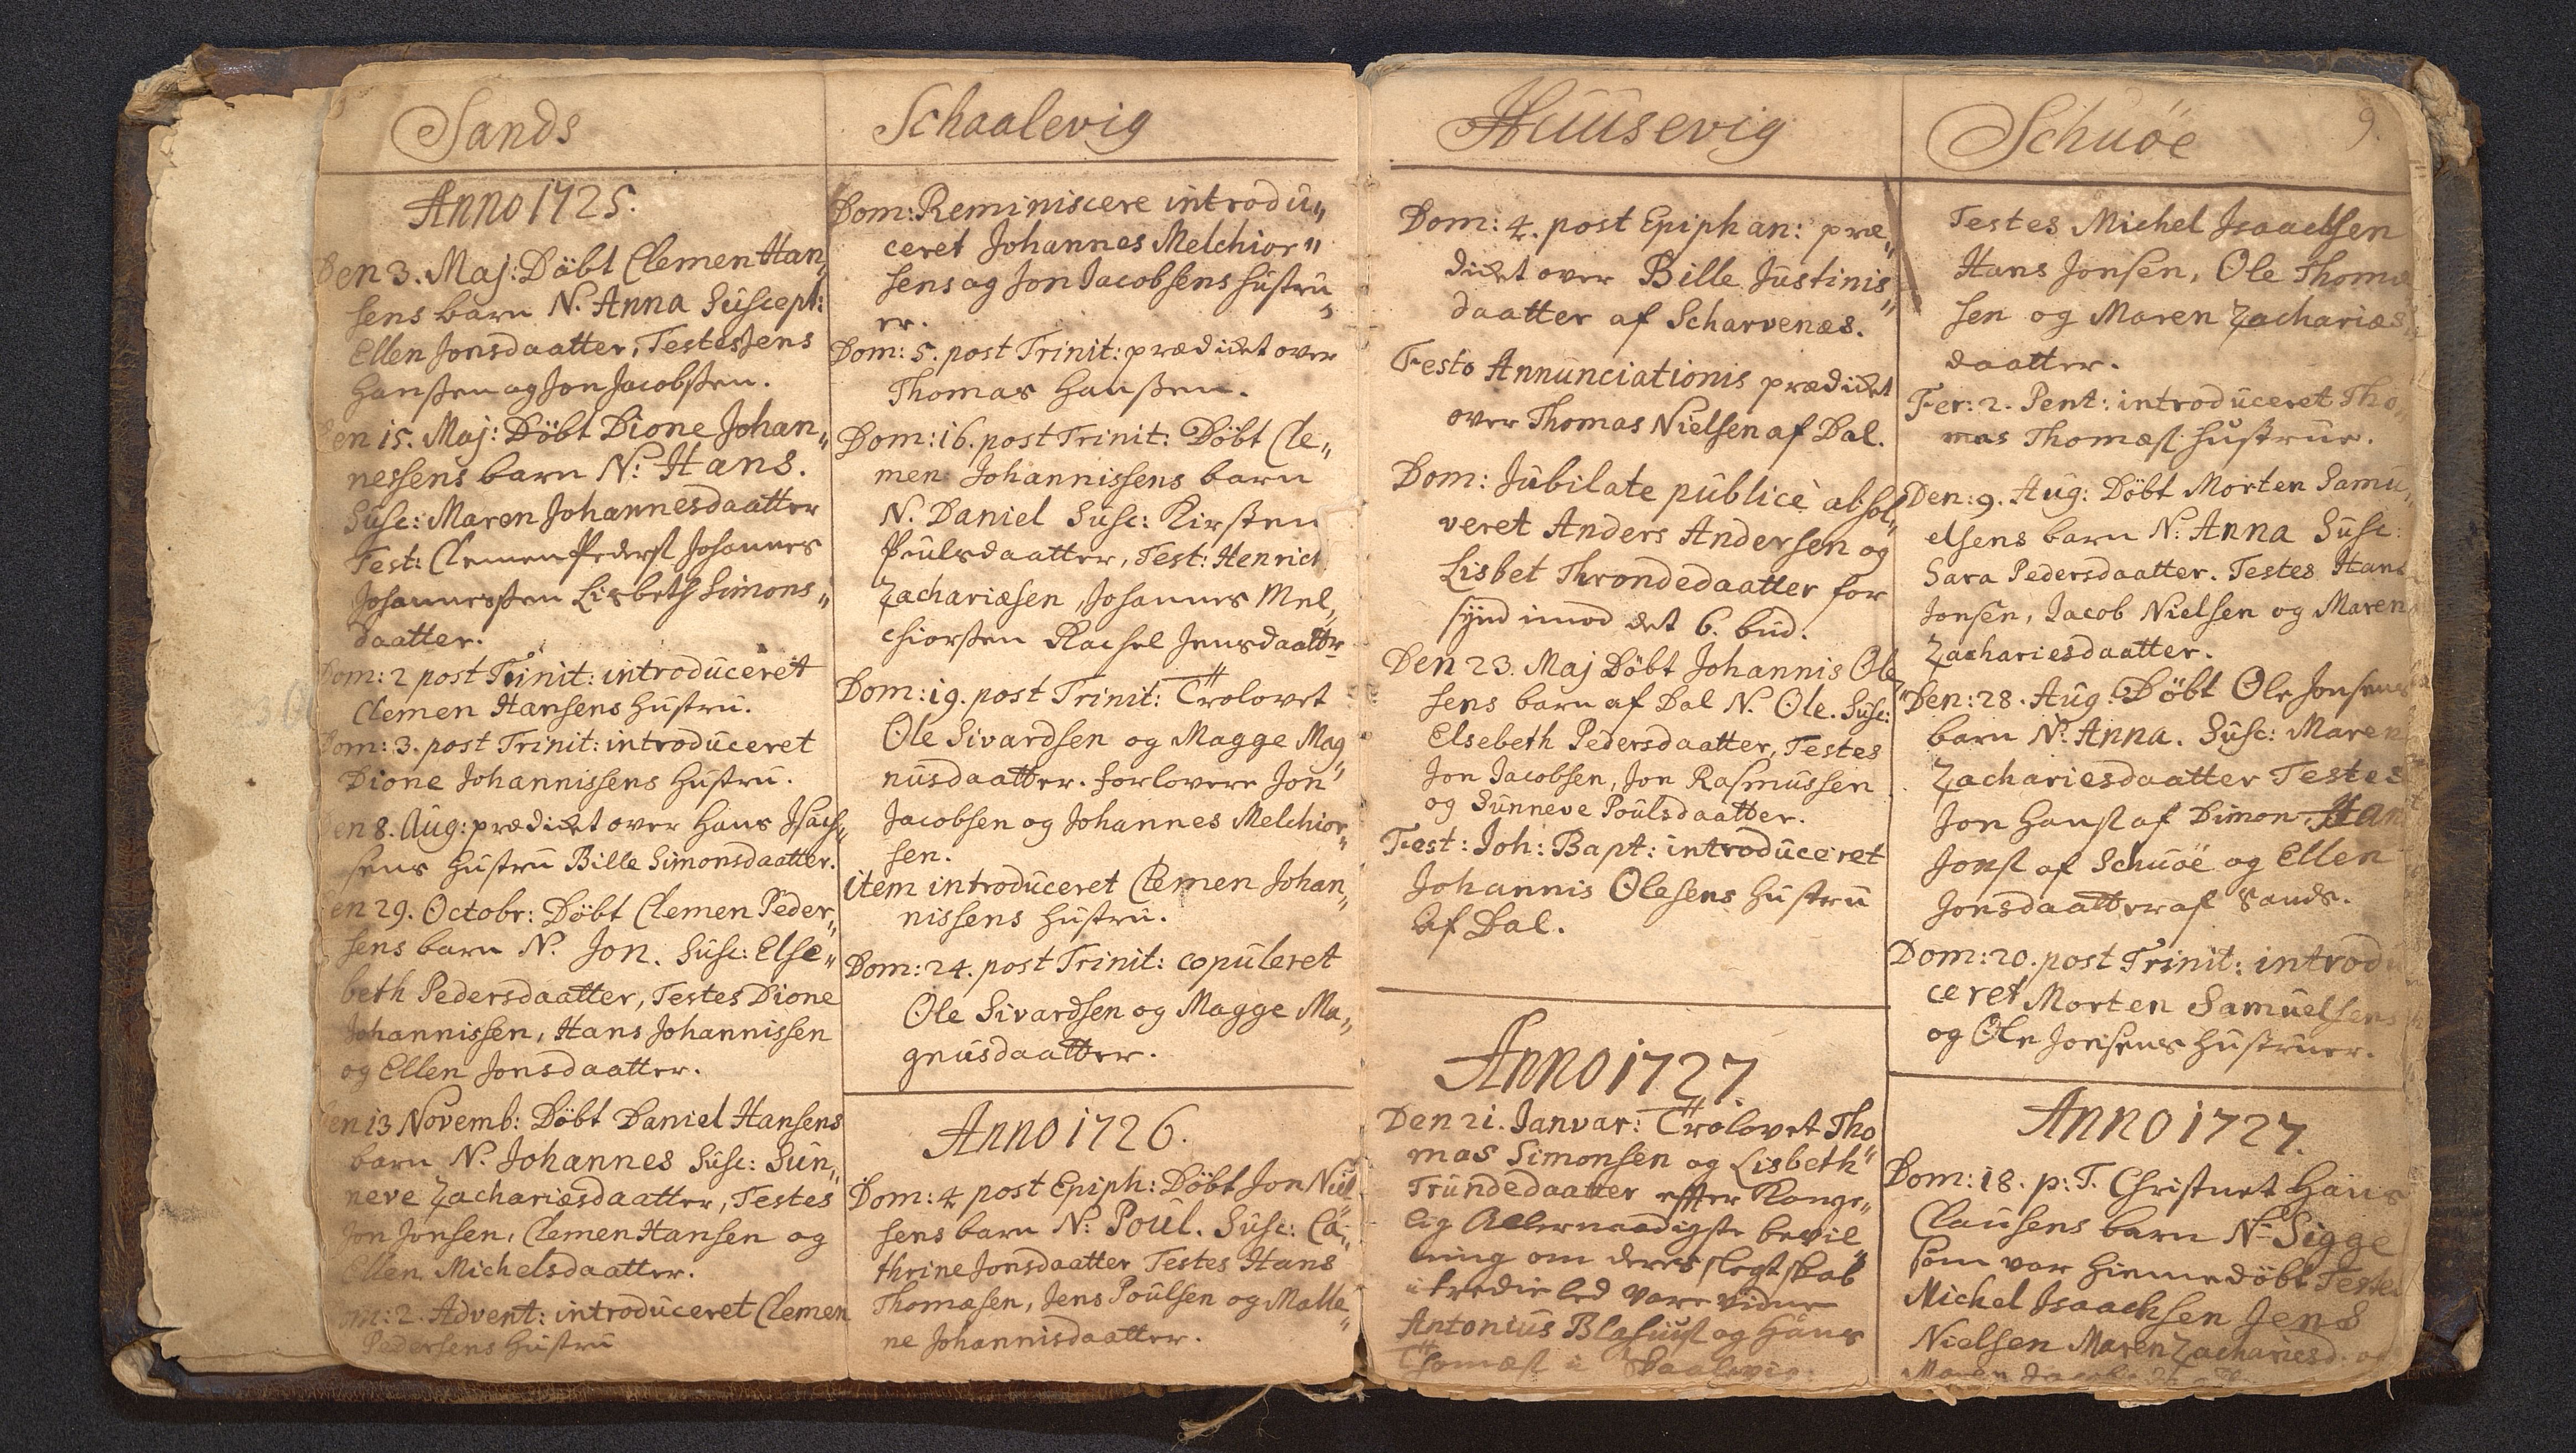 Sands
Anno 1725.
Den 3. Maj: Döbt Clemen Han„
sens barn N. Anna Suscept:
Ellen Jonsdaatter, Testes Jens
Hanssen og Jon Jacobssen.
Den 15. Maj: Döbt Dione Johan„
nessens barn N: Hans.
Susc: Maren Johannesdaatter
Test: Clemen Peders: Johannes
Johannessen Lisbeth Simons„
daatter.
Dom: 2 post Trinit: introduceret
Clemen Hansens Hustru.
Dom: 3. post Trinit: introduceret
Dione Johannissens Hustru.
Den 8. Aug: prædicket over Hans Isach„
sens Hustru Bille Simonsdaatter.
Den 29. Octobr: Döbt Clemen Peder„
sens barn N. Jon. Susc: Else„
beth Pedersdaatter, Testes Dione
Johannissen, Hans Johannissen
og Ellen Jonsdaatter.
Den 13 Novemb: Döbt Daniel Hansens
barn N. Johannes Susc: Sun„
neve Zachariæsdaatter, Testes
Jon Jonsen, Clemen Hansen og
Ellen Michelsdaatter.
Dom: 2. Advent: introduceret Clemen
Pedersens Hustru
Schaalevig
Dom: Reminiscere introdu„
ceret Johannes Melchior„
sens og Jon Jacobsens Hustru„
er.
Dom: 5. post Trinit: prædicket over
Thomas Hanssen.
Dom: 16. post Trinit: Döbt Cle„
men Johannissens barn
N. Daniel Susc: Kirsten
Poulsdaatter, Test: Henrich
Zachariæsen, Johannes Mel„
chiorssen Rachel Jensdaatter
Dom: 19. post Trinit: Trolovet
Ole Sivardsen og Magge Mag„
nusdaatter. forlovere Jon
Jacobsen og Johannes Melchior„
sen.
item introduceret Clemen Johan„
nissens Hustru.
Dom: 24. post Trinit: copuleret
Ole Sivardsen og Magge Ma„
gnusdaatter.
Anno 1726.
Dom: 4 post Epiph: Döbt Jon Niel
sens barn N: Poul. Susc: Ca„
thrine Jonsdaatter Testes Hans
Thomæsen, Jens Poulsen og Malle„
ne Johannisdaatter.
Huusevig
Dom: 4. post Epiphan: præ„
dicket over Bille Justinis„
daatter af Scharvenæs.
Festo Annunciationis prædicket
over Thomas Nielsen af Dal.
Dom: Jubilate publicè absol„
veret Anders Andersen og
Lisbet Throndedaatter for
synd imod det 6. bud.
Den 23. Maj Döbt Johannis Ole„
sens barn af Dal N. Ole. Susc:
Elsebeth Pedersdaatter, Testes
Jon Jacobsen, Jon Rasmussen
og Sunneve Poulsdaatter.
Fest: Joh: Bapt: introduceret
Johannis Olesens Hustru
af Dal.
Anno 1727.
Den 21. Januar: Trolovet Tho„
mas Simonsen og Lisbeth
Trundedaatter efter Konge„
lig Allernaadigste bevil„
ning om deres slegtskab
i tredie led vare vidne
Antonius Blasius: og Hans
Thomæs: i Skaalevig.
Schuöe
9.
Testes Michel Isaachsen
Hans Jonsen, Ole Thomæ
sen og Maren Zachariæs„
daatter.
Fer: 2. Pent: introduceret Tho„
mas Thomæs: Hustrue.
Den: 9. Aug: Döbt Morten Samu„
elsens barn N: Anna Susc:
Sara Pedersdaatter. Testes Hans
Jonsen, Jacob Nielsen og Maren
Zachariesdaatter.
Den: 28. Aug: Döbt Ole Jonsens
barn N. Anna. Susc: Maren
Zachariesdaatter Testes
Jon Hans: af Dimon, Han
Jons: af Schuöe og Ellen
Jonsdaatter af Sands.
Dom: 20. post Trinit: introdu
ceret Morten Samuelsens
og Ole Jonsens Hustruer.
Anno 1727.
Dom: 18. p: T. Christnet Hans
Clausens barn N: Sigge
som var hiemmedöbt Testes
Michel Isaachsen Jens
Nielsen Maren Zachariesd: og
Maren